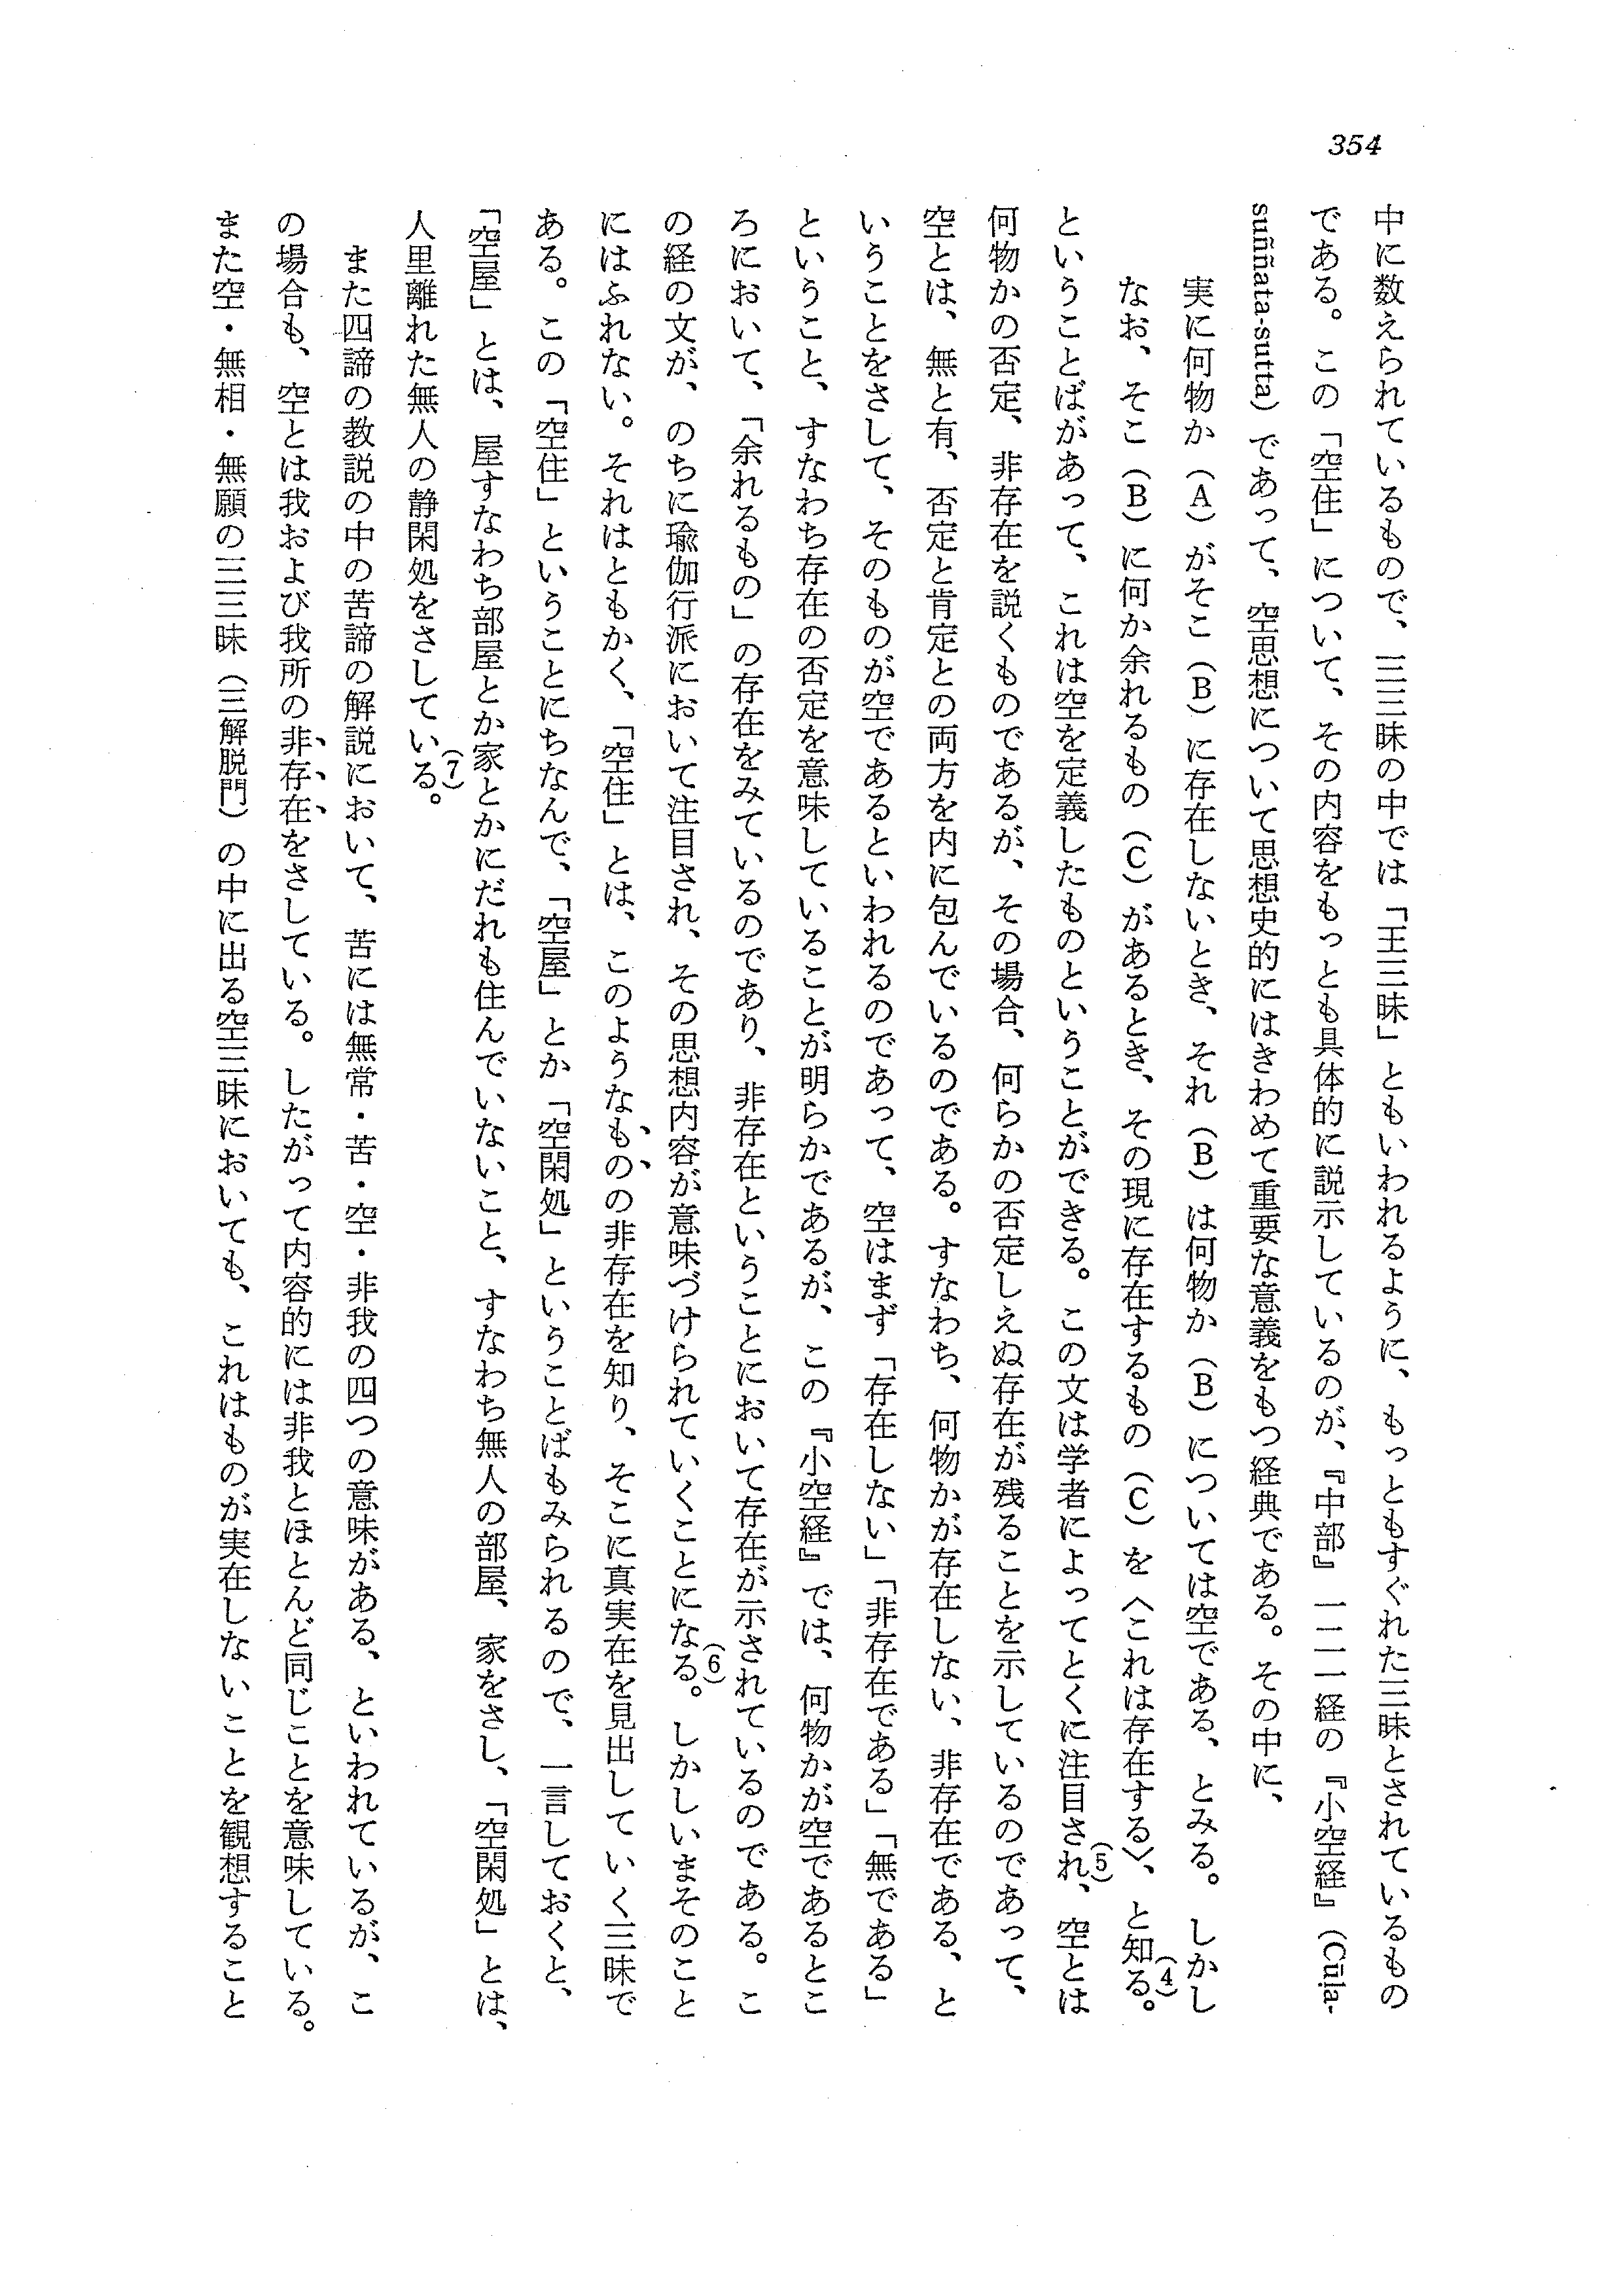 354
中に数えられているもので、三三昧の中では「王三昧」ともいわれるように、もっともすぐれた三昧とされているもの
である。この「空住」について、その内容をもっとも具体的に説示しているのが、『中部』一二一経の『小空経』（Cūḷa-
suññata-sutta）であって、空思想について思想史的にはきわめて重要な意義をもつ経典である。その中に、
実に何物か（A）がそこ（B）に存在しないとき、それ（B）は何物か（B）については空である、とみる。しかし
なお、そこ（B）に何か余れるもの（C）があるとき、その現に存在するもの（C）を〈これは存在する〉、と知る。(4)
ということばがあって、これは空を定義したものということができる。この文は学者によってとくに注目され、(5)空とは
何物かの否定、非存在を説くものであるが、その場合、何らかの否定しえぬ存在が残ることを示しているのであって、
空とは、無と有、否定と肯定との両方を内に包んでいるのである。すなわち、何物かが存在しない、非存在である、と
いうことをさして、そのものが空であるといわれるのであって、空はまず「存在しない」「非存在である」「無である」
ということ、すなわち存在の否定を意味していることが明らかであるが、この『小空経』では、何物かが空であるとこ
ろにおいて、「余れるもの」の存在をみているのであり、非存在ということにおいて存在が示されているのである。こ
の経の文が、のちに瑜伽行派において注目され、その思想内容が意味づけられていくことになる。(6)しかしいまそのこと
にはふれない。それはともかく、「空住」とは、このようなものの非存在を知り、そこに真実在を見出していく三昧で
ある。この「空住」ということにちなんで、「空屋」とか「空閑処」ということばもみられるので、一言しておくと、
「空屋」とは、屋すなわち部屋とか家とかにだれも住んでいないこと、すなわち無人の部屋、家をさし、「空閑処」とは、
人里離れた無人の静閑処をさしている。(7)
また四諦の教説の中の苦諦の解説において、苦には無常・苦・空・非我の四つの意味がある、といわれているが、こ
の場合も、空とは我および我所の非存在をさしている。したがって内容的には非我とほとんど同じことを意味している。
また空・無相・無願の三三昧（三解脱門）の中に出る空三昧においても、これはものが実在しないことを観想すること